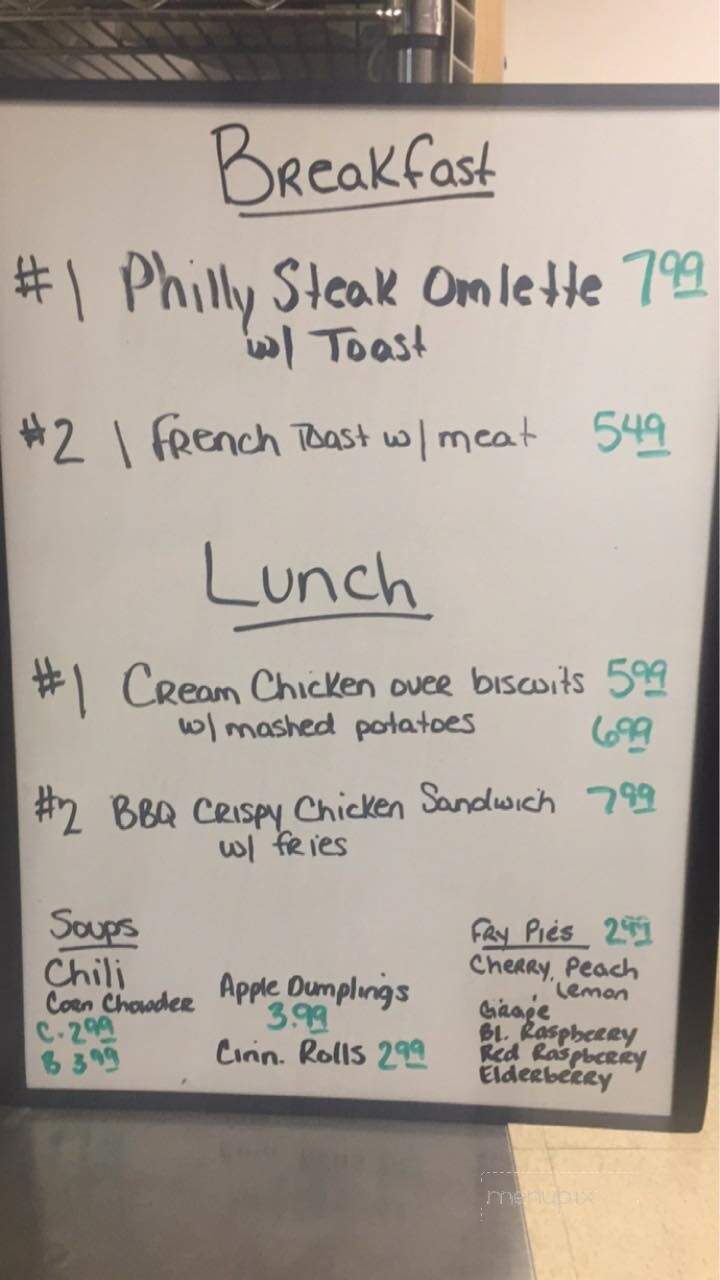 Breakfast
#1 Philly Steak Omlette 7.99
w/ Toast
#2 1 French Toast w/ meat 5.49
Lunch
#1 Cream Chicken over biscuits 5.99
w/ mashed potatoes 6.99
#2 BBQ Crispy Chicken Sandwich 7.99
w/ fries
Soups
Chili
Corn Chowder
C. 2.99
B 3.99
Apple Dumplings
3.99
Cinn. Rolls 2.99
Fry Pies
Cherry, Peach
, Lemon
Grape
Bl. Raspberry
Red Raspberry
Elderberry
menupix